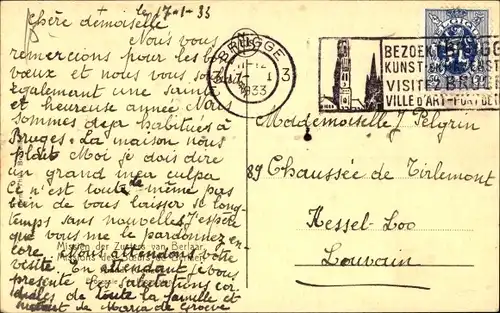 le 17-1-33
Chère demoiselle
Nous vous
remercions pour les bons
voeux et nous vous sou
également une sainte
et heureuse année Nous
sommes deja habitués à
Bruges. La maison nous
plait Moi je dois dire
un grand mea culpa
Ce n'est toute de même pas
bien de vous laisser si long-
temps sans nouvelles J'espère
que vous me le pardonnez en-
core. Nous attendons votre
visite. En attendant je vous
presente les salutations cor-
diales de toute la famille et
surtout de Maria de Groeve
Missien der Zusters van Berlaar
Missions des Soeurs de Berlaer
BRUGGE
3 3
17. I
1933
BEZOEKT BRUGGE
KUNSTSTAD
VISITEZ BRUGES
VILLE D'ART-PORT DE
BELGIQUE
Mademoiselle J Pelgrin
89 Chaussée de Tirlemont
Kessel-Loo
Louvain